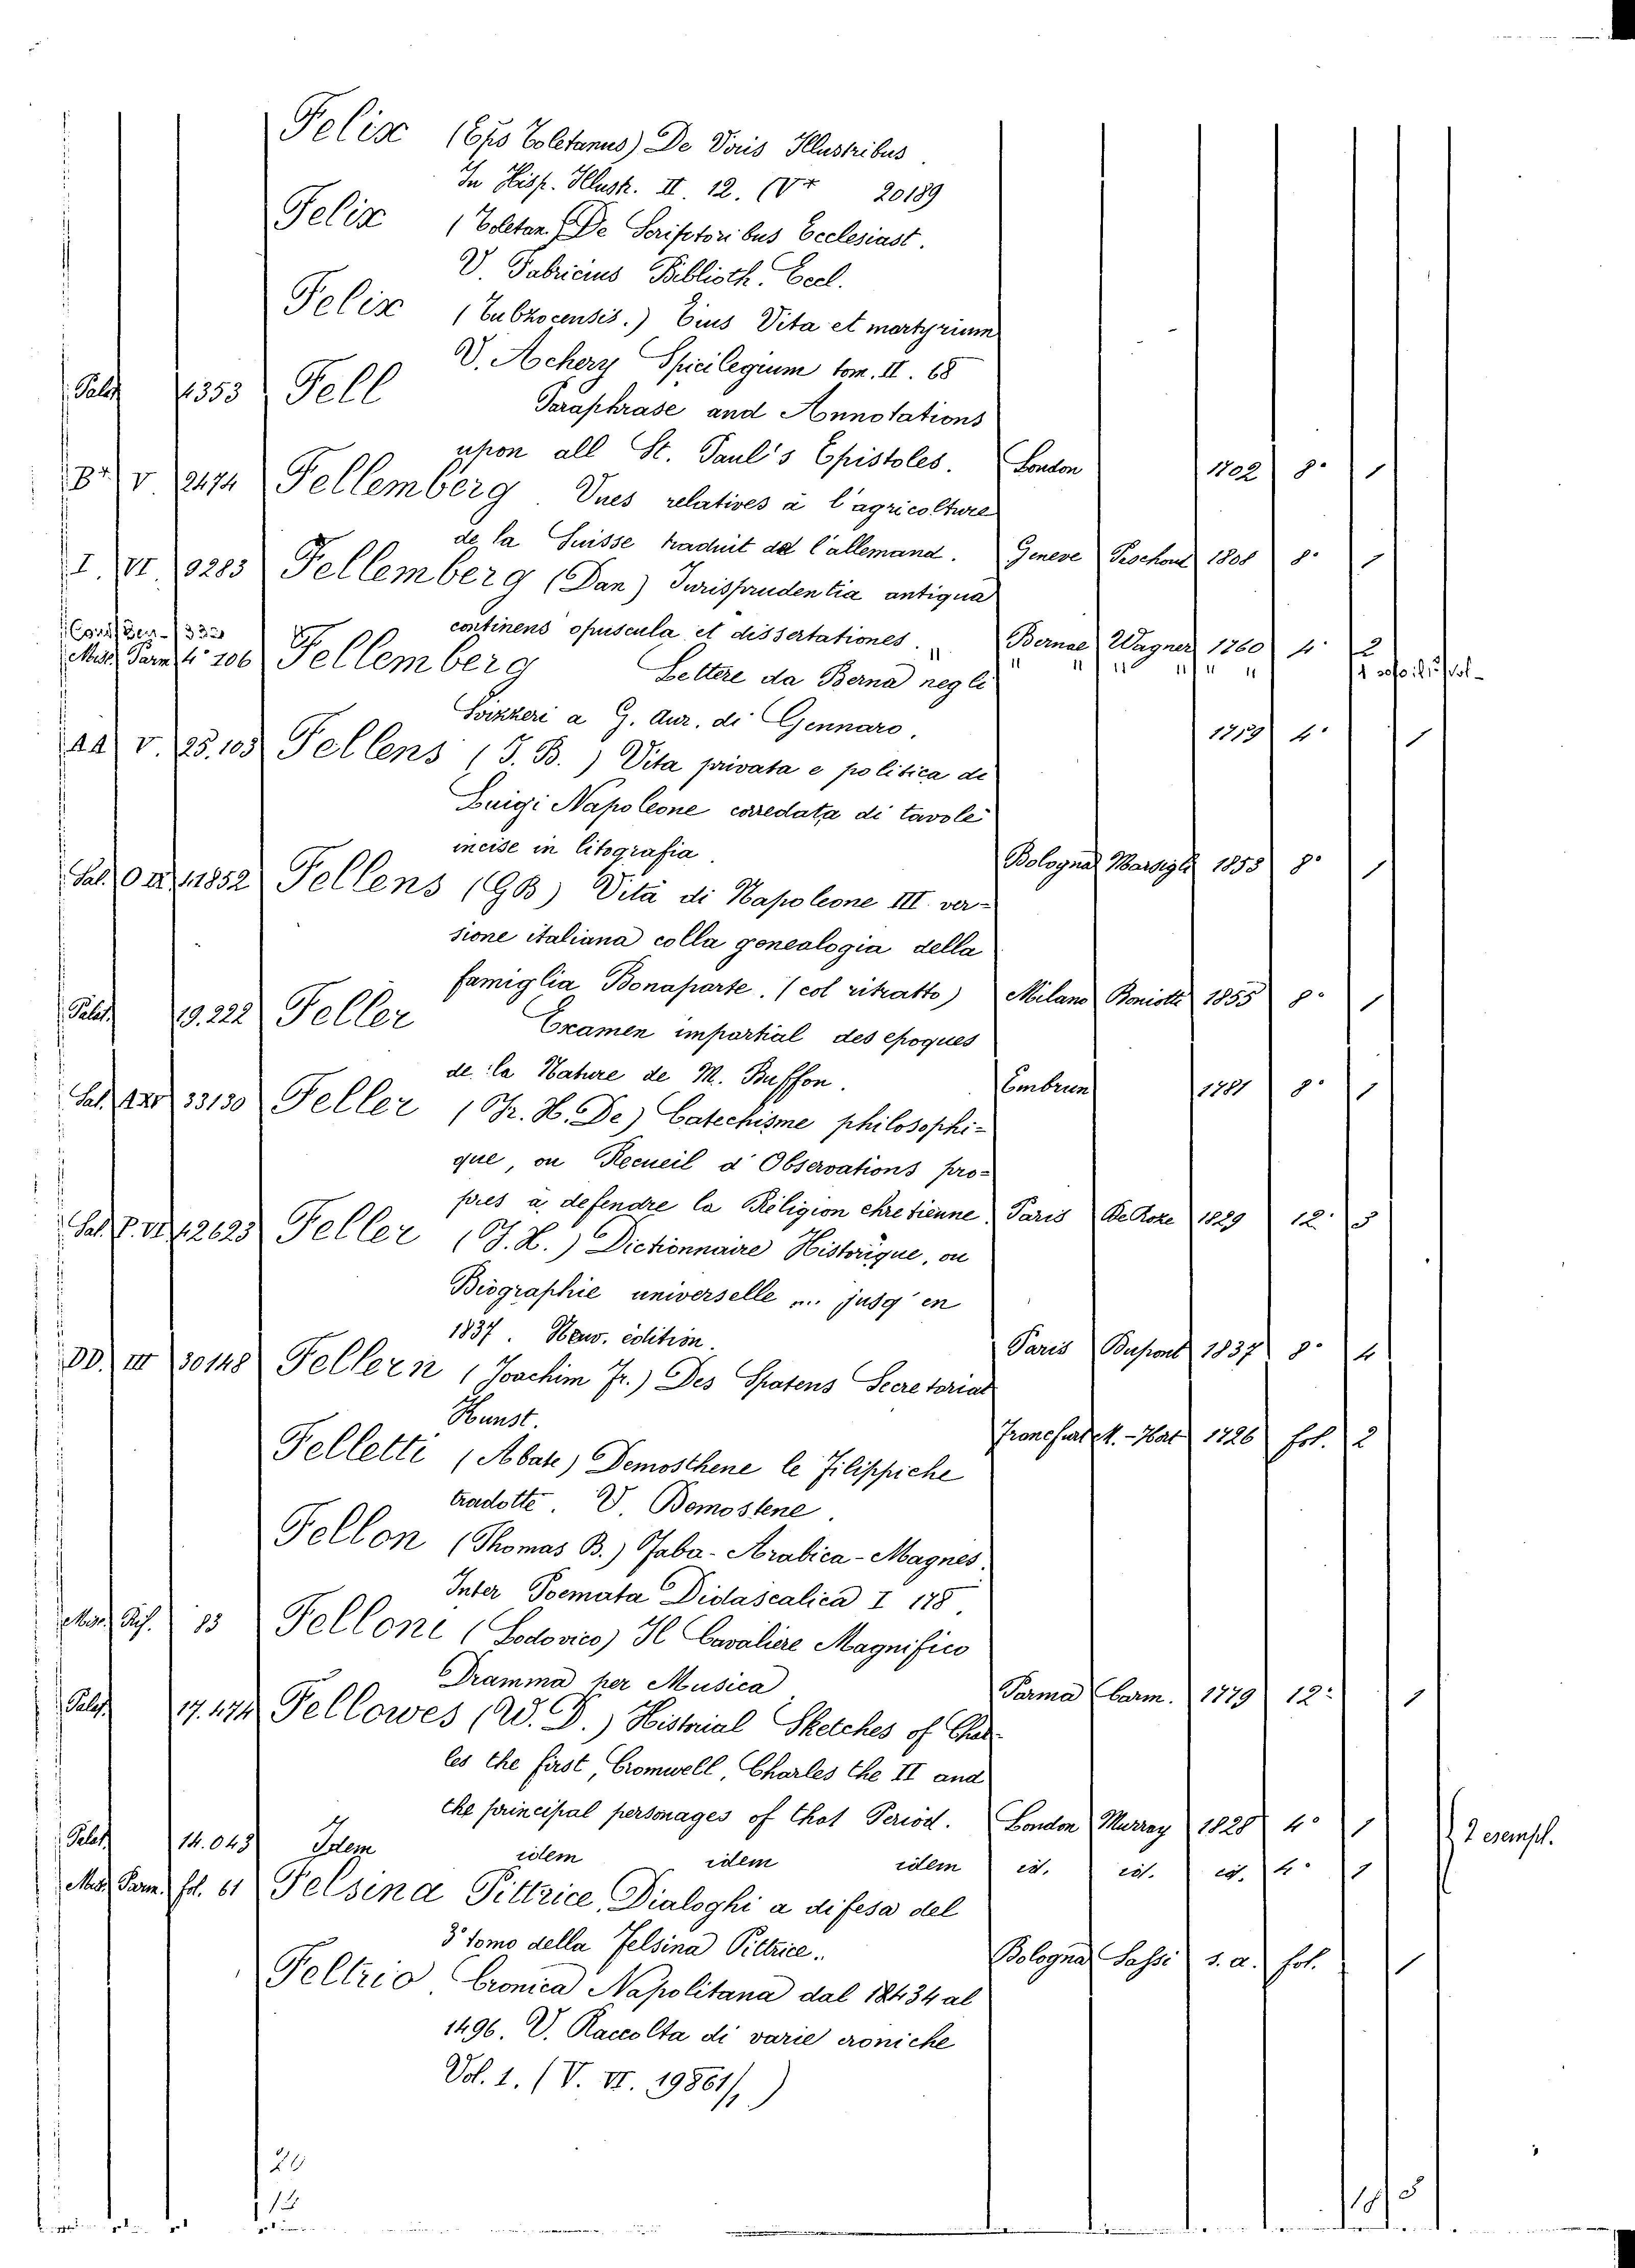 Felix (Eps Toletanus) De Viris Illustribus
In Hisp. Illustr. II 12. (V* 20189
Felix (Toletan.) De Scriptoribus Ecclesiast.
V. Fabricius Biblioth. Eccl.
Felix (Tubzocensis.) Eius Vita et martyrium
V. Achery Spicilegium tom. II. 68
Palat 4353 Fell Paraphrase and Annotations
upon all St. Paul's Epistoles. London 1702 8° 1
V 2474 Fellemberg. Vues relatives à l'agricolture
de la Suisse traduit de l'allemand. Geneve Peschoud 1808 8° 1
I. VI 9283 Fellemberg (Dan) Jurisprudentia antiqua
continens opuscula et dissertationes. Bernae Wagner 1760 4° 2
Misc. Parm 4° 106 Fellemberg Lettere da Berna negli
Svizzeri a G. Aur. di Gennaro. 1759 4° 1
AA V. 25.103 Fellens (J. B.) Vita privata e politica di
Luigi Napoleone corredata di tavole
incise in litografia. Bologna Marsigli 1853 8° 1
Sal. O II 41852 Fellens (GB) Vita di Napoleone III. ver-
sione italiana colla genealogia della
famiglia Bonaparte. (col ritratto) Milano Boniotti 1855 8° 1
Palat. 19.222 Feller Examen impartial des epoques
de la Nature de M. Buffon. Embrun 1781 8° 1
Sal. 33130 Feller (Fr. X. De) Catechisme philosophi-
que, ou Recueil d'Observations pro-
pres a defendre la Religion chretienne. Paris 1829 12° 3
Sal. P. VI 42623 Feller (J. X.) Dictionnaire Historique, ou
Biographie universelle ... jusq'en
1837. Nouv. édition. Paris Dupont 1837 8° 4
DD. III 30148 Fellern (Joachim Fr.) Des Spatens Secretariat
Kunst. Froncfurt 1726 fol. 2
Felletti (Abate) Demosthene le Filippiche
tradotte. V. Demostene.
Fellon (Thomas B.) Faba-Arabica-Magnes.
Inter Poemata Didascalica I 178.
Misc. 83 Felloni (Lodovico) Il Cavaliere Magnifico
Dramma per Musica Parma Carm. 1779 12° 1
Palat 17.474 Fellowes (W. D.) Historial Sketches of Char-
les the first, Cromwell, Charles the II and
the principal personages of that Period. London Murray 1828 4° 1
Palat 14.043 Idem idem idem idem id. id. id. 4° 1 2 esempl.
Misc. Parm. fol. 61 Felsina Pittrice, Dialoghi a difesa del
3° tomo della Felsina Pittrice. Bologna Sassi s. a. fol. 1
Feltrio Cronica Napolitana dal 18434 al
1496. V. Raccolta di varie croniche
Vol. 1. (V. VI. 19861/1)
20
12